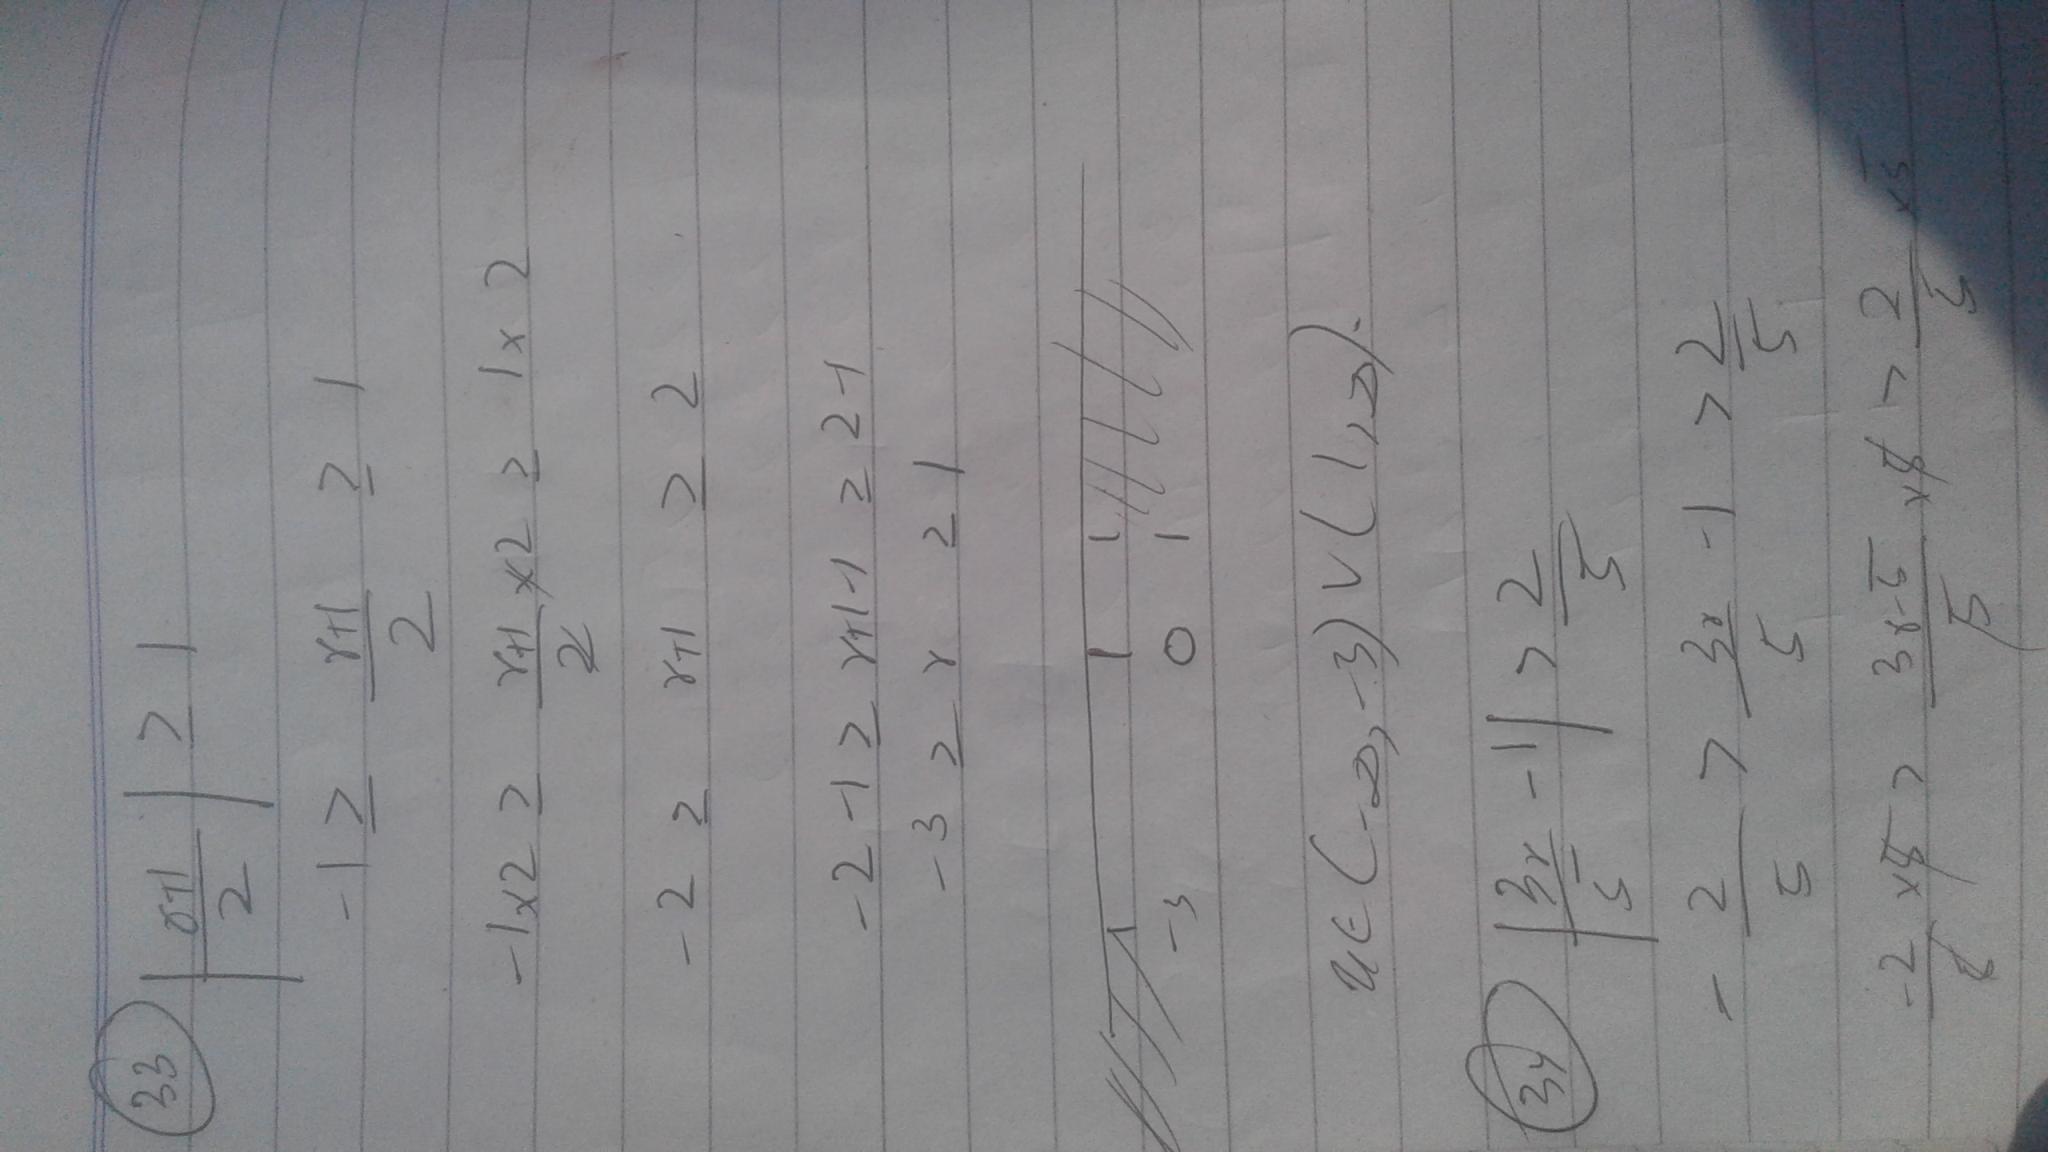 33 |r+1/2| ≥ 1
-1 ≥ r+1/2 ≥ 1
-1×2 ≥ r+1/2 ×2 ≥ 1×2
-2 ≥ r+1 ≥ 2
-2-1 ≥ r+1-1 ≥ 2-1
-3 ≥ r ≥ 1
-3 0 1
x∈(-∞,-3)∪(1,∞).
34 |3r/5 -1| > 2/5
-2/5 > 3r/5 -1 > 2/5
-2/5 ×5 > 3r-5/5 ×5 > 2/5 ×5